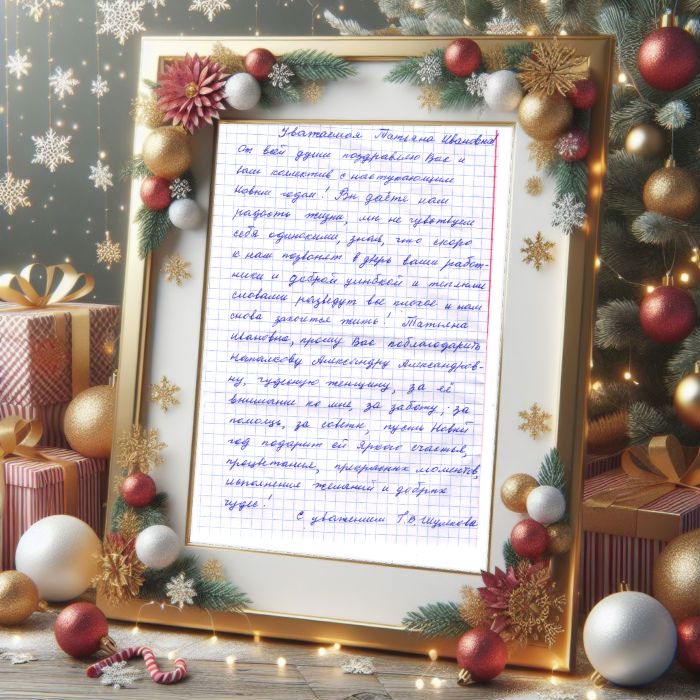 Уважаемая Татьяна Ивановна!
От всей души поздравляю Вас и
ваш колектив с наступающим
Новым годом! Вы даёте нам
радость жизни, мы не чувствуем
себя одинокими, зная, что скоро
к нам позвонят в дверь ваши работ-
ники и доброй улыбкой и теплыми
словами разведут все плохое и нам
снова захочется жить! Татьяна
Ивановна, прошу Вас поблагодарить
Александру Александров-
ну, чудесную женщину, за её
внимание ко мне, за заботу, за
помощь, за советы, пусть Новый
год подарит ей яркого счастья,
процветания, прекрасных моментов,
исполнения желаний и добрых
чудес!
С уважением Г.В. Шулкова